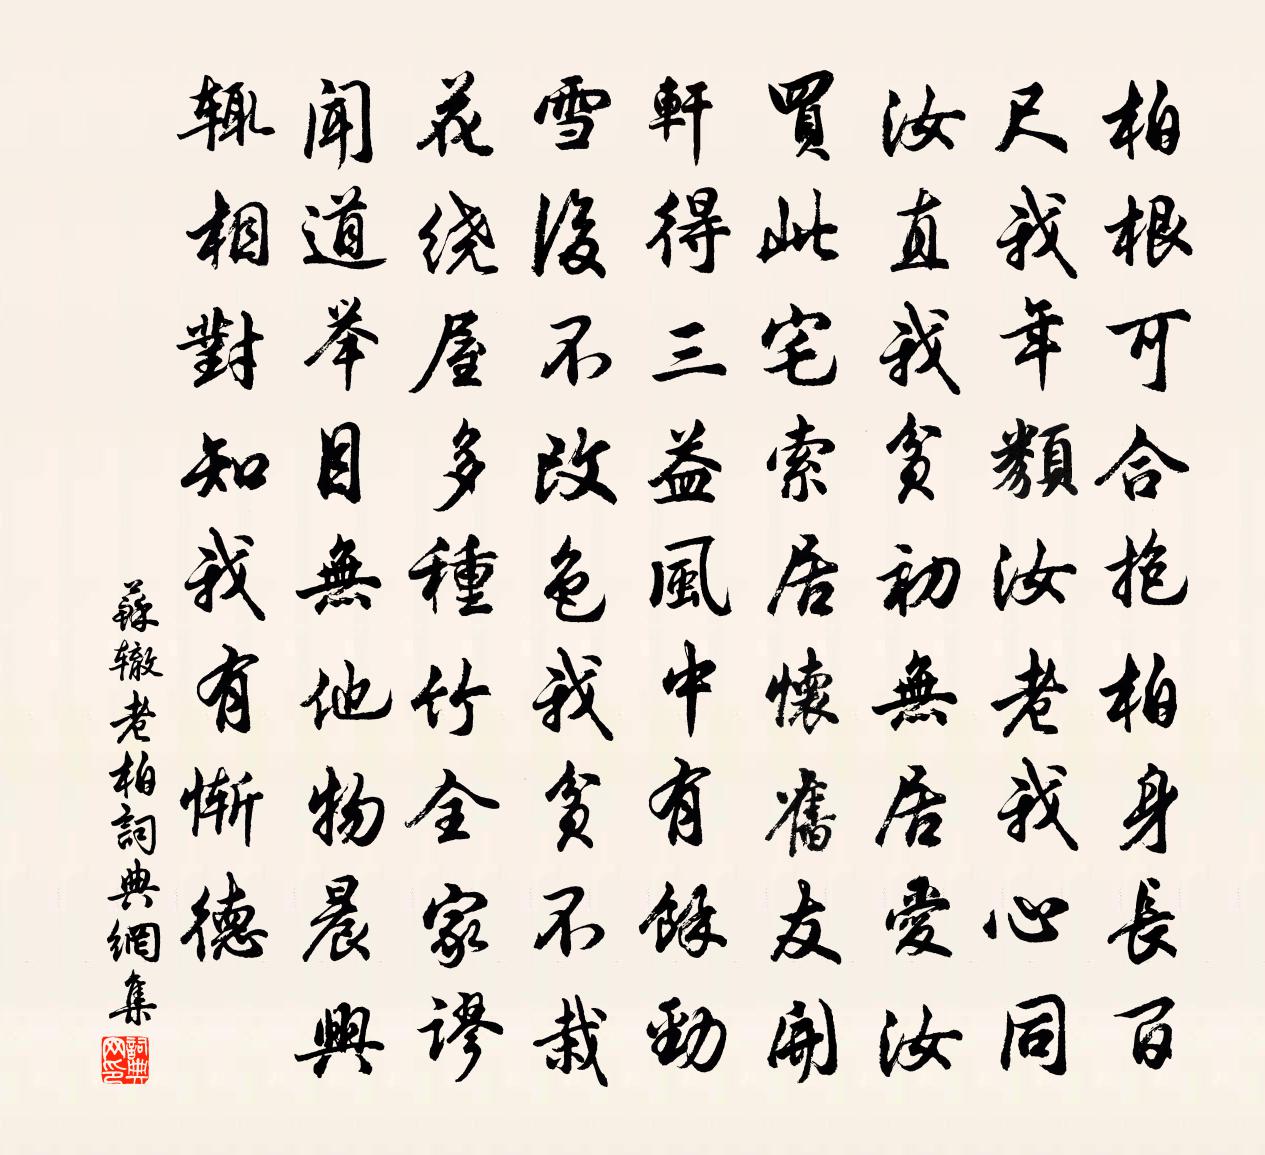 柏根可合抱柏身長百
尺我年類汝老我心同
汝直我貧初無居愛汝
買此宅索居懷舊友開
軒得三益風中有餘勁
雪後不改色我貧不栽
花绕屋多種竹全家谬
聞道举目無他物晨興
辄相對知我有慚德
蘇辙老柏詞典網集
詞典网印